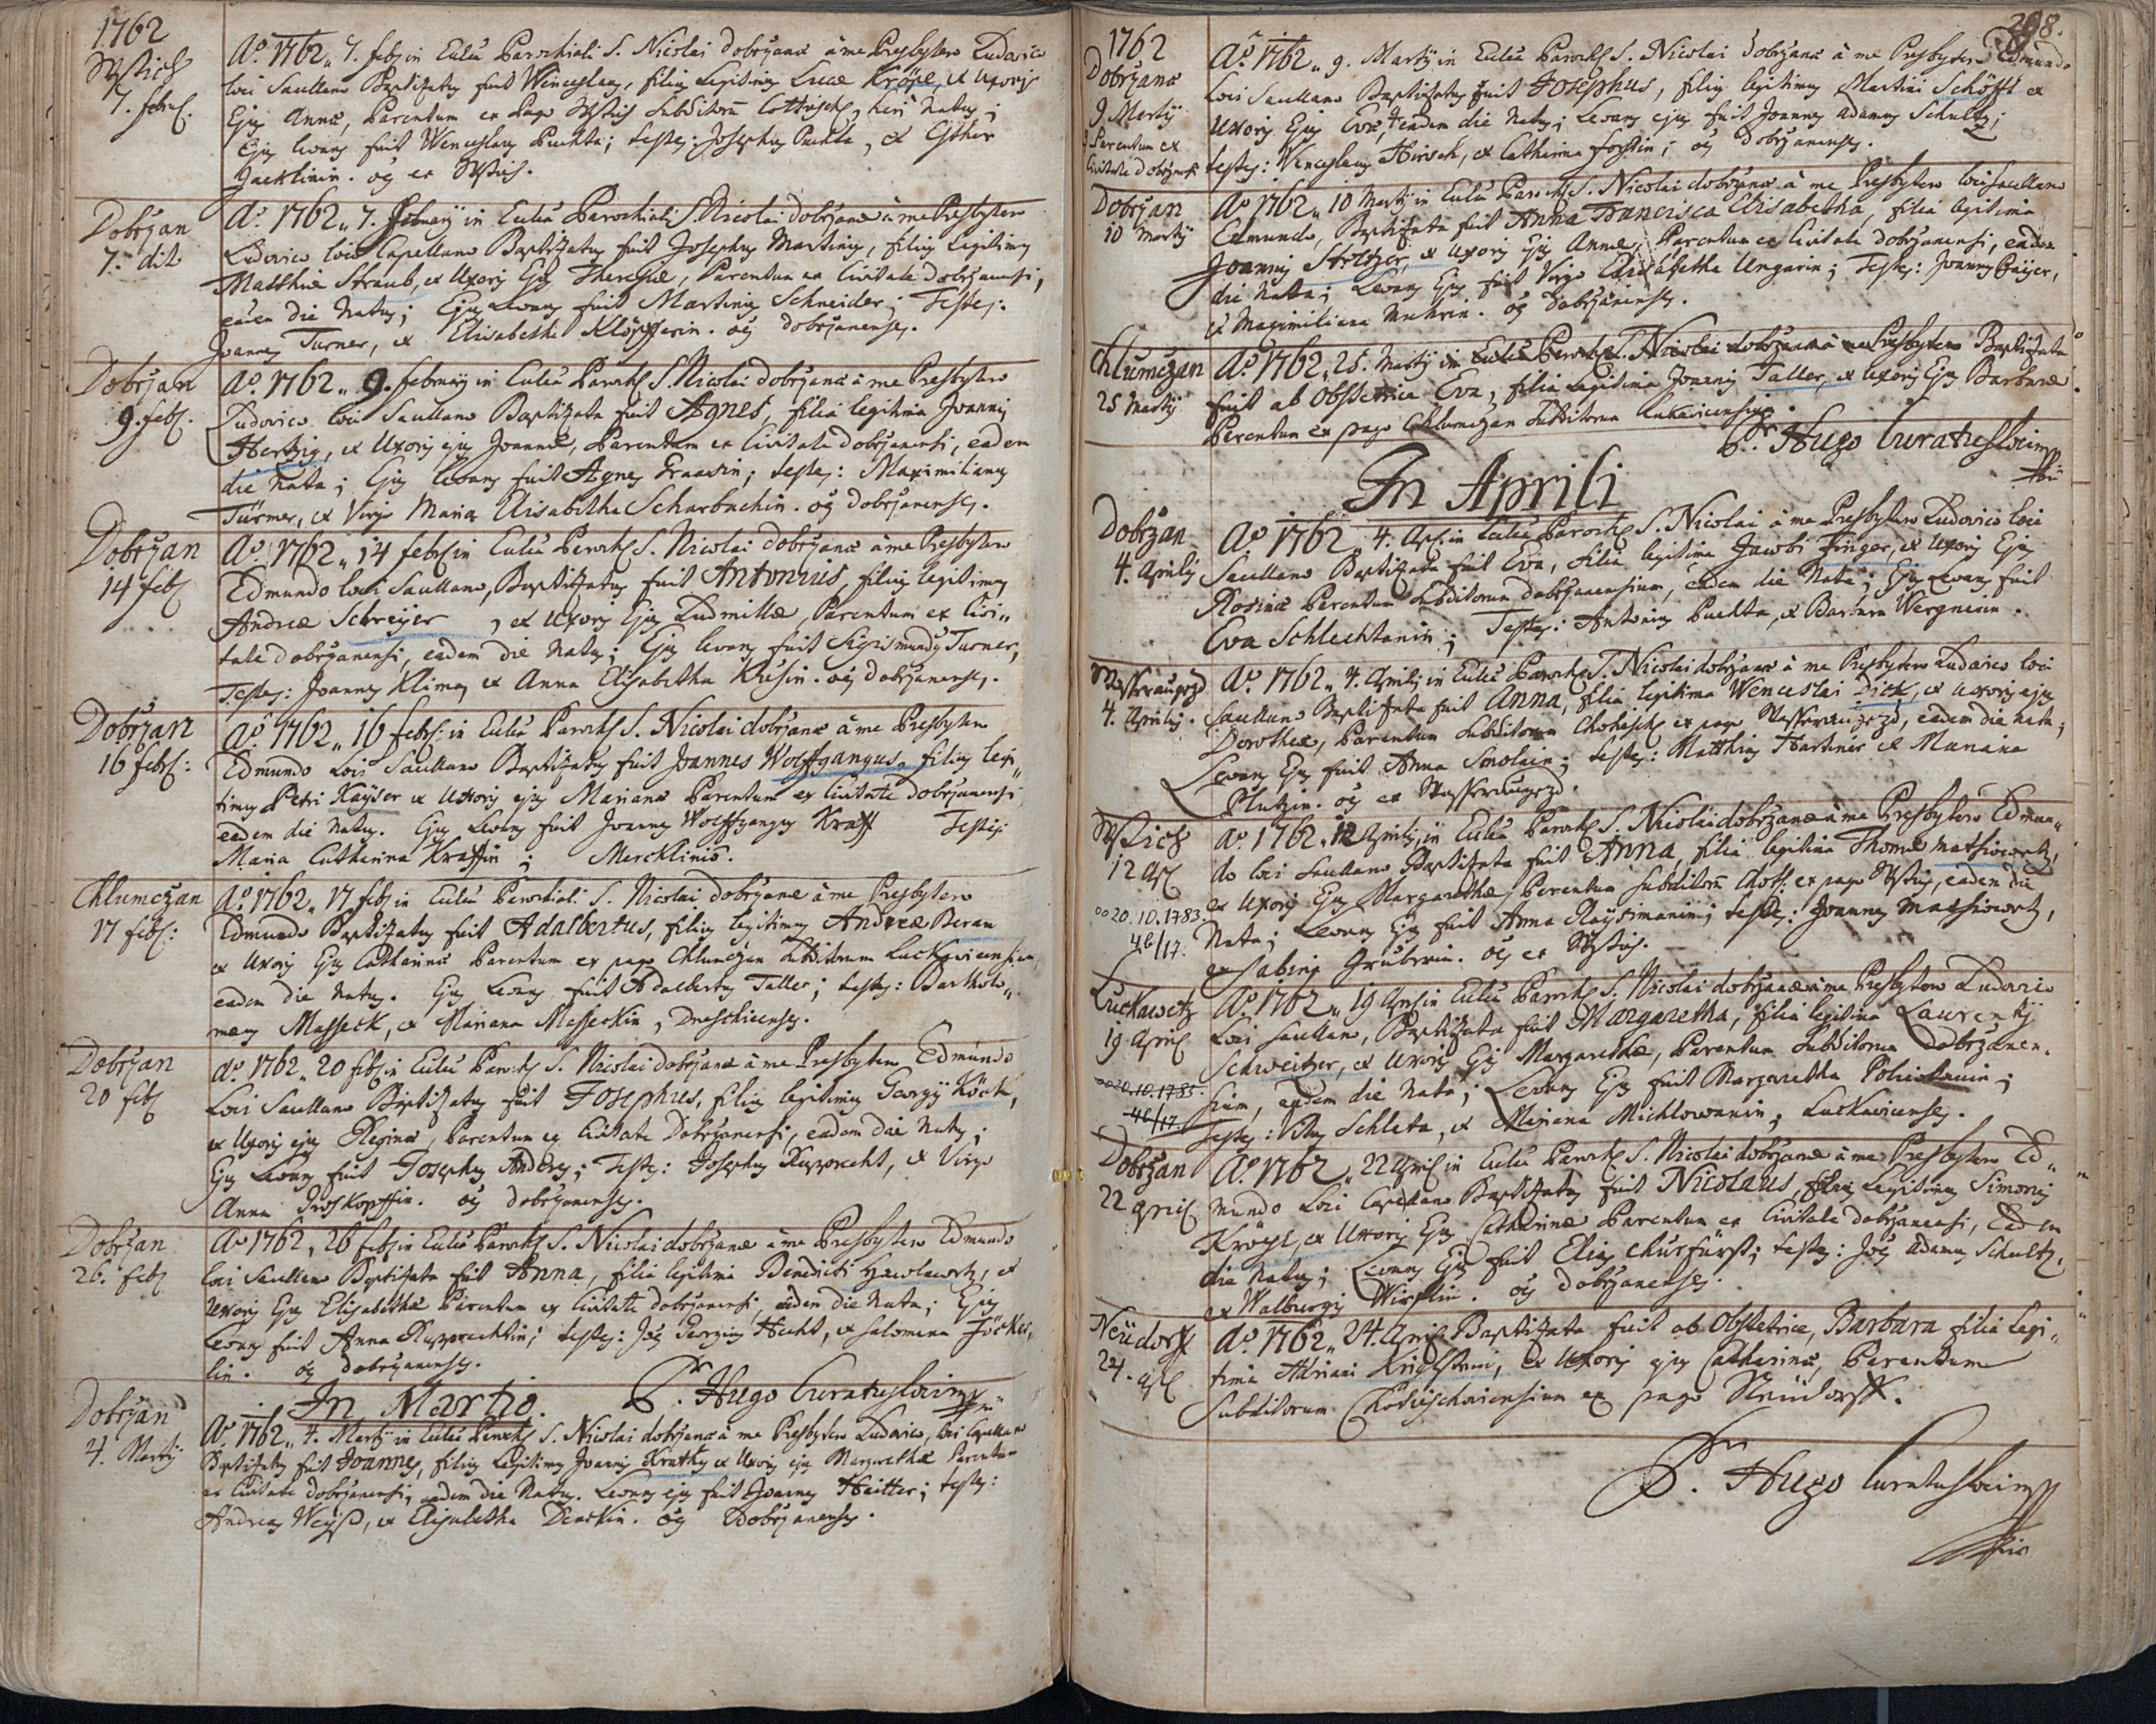 1762
Wstich
7. febr.
Aº 1762 „ 7. feb. in Eccła Parochiali S. Nicolai dobrzanæ à me Presbytero Ludovico
loci Sacellano Baptizatus fuit Wenceslaus, filius Legitimus Lucæ Kröpl, et Uxoris
Ejus Annæ, Parentum ex Pago Wstich Subditorum, heri Natus;
Ejus levans fuit Wenceslaus Puchta; testes: Josephus Puchta, et Esther
Jacklinin. oes ex Wstich.
Dobrzan
7. dit
Aº 1762 „ 7. Februarij in Eccła Parochiali S. Nicolai dobrzanæ à me Presbytero
Ludovico loci Capellano Baptizatus fuit Josephus Martinus, filius Legitimus
Matthiæ Straub, et Uxoris Ejus Theresiæ, Parentum ex Civitate dobrzanensi,
eadem die Natus; Ejus Levans fuit Martinus Schneider; Testes:
Joannes Turner, et Elisabetha Klöpfferin. oes dobrzanenses.
Dobrzan
9. feb.
Aº 1762 „ 9. februarij in Eccła Paroch. S. Nicolai dobrzanæ à me Presbytero
Ludovico loci Sacellano Baptizata fuit Agnes, filia legitima Joannis
Hertzig, et Uxoris ejus Joannæ, Parentum ex Civitate dobrzanensi, eadem
die Nata; Ejus levans fuit Agnes Graavin; testes: Maximilianus
Türmer, et Virgo Maria Elisabetha Scharbachin. oes dobrzanenses.
Dobrzan
14 feb.
Aº 1762 „ 14 febr. in Eccła Paroch. S. Nicolai dobrzanæ à me Presbytero
Edmundo loci Sacellano, Baptizatus fuit Antonius, filius legitimus
Andreæ Schreyer, et Uxoris Ejus Ludmillæ, Parentum ex Civi„
tate dobrzanensi, eadem die Natus; Ejus levans fuit Sigismundus Turner,
Testes: Joannes Klima, et Anna Elisabetha Kresin. oes dobrzanenses.
Dobrzan
16 febr:
Aº 1762 „ 16 febr: in Eccła Paroch. S. Nicolai dobrzanæ à me Presbytero
Edmundo Loci Sacellano Baptizatus fuit Joannes Wolffgangus, filius legi„
timus Petri Kayser et Uxoris ejus Marianæ Parentum ex Civitate dobrzanensi
eadem die Natus. Ejus Levans fuit Joannes Wolffgangus Kraff Testes:
Maria Catharina Kraffin; Mercklinis.
Chlumczan
17 feb:
Aº 1762 „ 17 feb. in Eccła Parochiali S. Nicolai dobrzanæ à me Presbytero
Edmundo Baptizatus fuit Adalbertus, filius legitimus Andreæ Beran
et Uxoris Ejus Catharinæ Parentum ex pago Chlumczan Subditorum Luckavicensium,
eadem die Natus. Ejus Levans fuit Adalbertus Taller; testes: Bartholo„
mæus Masseck, et Mariana Masseckin,
Dobrzan
20 feb.
Aº 1762 „ 20 feb. in Eccła Paroch. S. Nicolai dobrzanæ à me Presbytero Edmundo
Loci Sacellano Baptizatus fuit Josephus, filius legitimus Georgij Köck,
et Uxoris ejus Reginæ, Parentum ex Civitate Dobrzanensi, eadem die Natus;
Ejus Levans fuit Josephus Anders; Testes: Josephus Rupprecht, et Virgo
Anna Proskopffin. oes dobrzanenses.
Dobrzan
26. feb.
Aº 1762, 26 feb. in Eccła Paroch. S. Nicolai dobrzanæ à me Presbytero Edmundo
loci Sacellano Baptizata fuit Anna, filia legitima Benedicti Hawlawetz, et
Uxoris Ejus Elisabethæ Parentum ex Civitate dobrzanensi, eadem die Nata; Ejus
Levans fuit Anna Rupprechtin; testes: Jos Georgius Hecht, et Salomena Jöcker„
lin. oes dobrzanenses.
P. Hugo Curatus loci mpp
In Martio.
Dobrzan
4. Martij
Aº 1762 „ 4. Martij in Eccła Paroch. S. Nicolai dobrzanæ à me Presbytero Ludovico, loci Capellano
Baptizatus fuit Joannes, filius Legitimus Joannis Kratky et Uxoris ejus Margarethæ Parentum
ex Civitate dobrzanensi, eadem die Natus. Levans ejus fuit Joannes Haitter; testes:
Andreas Weyss, et Elisabetha Denckin. oes Dobrzanenses.
298.
1762
Dobrzanæ
9. Martij
Parentum ex
Civitate dobrzansi
Aº 1762 „ 9. Martij in Eccła Paroch. S. Nicolai Dobrzanæ à me Presbytero Edmundo
Loci Sacellano Baptizatus fuit Josephus, filius legitimus Martini Schöfft et
Uxoris Ejus Evæ, eadem die Natus; Levans ejus fuit Joannes Adamus Schultz;
testes: Wenceslaus Hirsch, et Catharina forstin; oes Dobrzanenses.
Dobrzan
10 Martij
Aº 1762 „ 10 Martij in Eccła Paroch. S. Nicolai dobrzanæ à me Presbytero loci Sacellano
Edmundo, Baptizata fuit Anna Francisca Elisabetha, filia legitima
Joannis Stroltzer, et Uxoris Ejus Annæ, Parentum ex Civitate dobrzanensi, eadem
die Nata; Levans Ejus fuit Virgo Elisabetha Ungarin; Testes: Joannes Payer,
et Maximiliana Muhrin. oes Dobrzanenses.
Chlumczan
25 Martij
Aº 1762 „ 25. Martij in Eccła Paroch. S. Nicolai dobrzanæ à me Presbytero Baptizata
fuit ab Obstetrice Eva, filia legitima Joannis Taller, et Uxoris Ejus Barbaræ
Parentum ex pago Chlumczan Subditorum Lukavicensium.
P. Hugo Curatus loci mpp
In Aprili
Dobrzan
4. Aprilis
Aº 1762 „ 4. Apr. in Eccła Paroch. S. Nicolai à me Presbytero Ludovico loci
Sacellano Baptizata fuit Eva, filia legitima Jacobi Finger, et Uxoris Ejus
Rosinæ Parentum Subditorum dobrzanensium, eadem die Nata; Ejus Levans fuit
Eva Schlechtanin; Testes: Antonius Puchta, et Barbara Wergnerin.
4. Aprilis.
Aº 1762 „ 4. Aprilis in Eccła Paroch. S. Nicolai dobrzanæ à me Presbytero Ludovico loci
Sacellano Baptizata fuit Anna, filia legitima Wenceslai Dick, et Uxoris ejus
Dorotheæ, Parentum Subditorum ex pago, eadem die Nata;
Levans Ejus fuit Anna Smolain; testes: Matthias Hartinis et Mariana
Plutzin. oes ex
Wstich
12 Apr.
∞ 20.10.1783.
46/17.
Aº 1762 „ 12 Aprilis, in Eccła Paroch. S. Nicolai dobrzanæ à me Presbytero Edmun„
do loci Sacellano Baptizata fuit Anna, filia legitima Thomæ Mathiowetz,
et Uxoris Ejus Margarethæ, Parentum Subditorum Chott: ex pago Wstich, eadem die
Nata; Levans Ejus fuit Anna Raysimanin; testes: Joannes Mathiowetz,
et Sabina Gruberin. oes ex Wstich.
Luckawetz
19 April
∞ 20.10.1783.
46/17.
Aº 1762 „ 19 Apr. in Eccła Paroch. S. Nicolai dobrzanæ à me Presbytero Ludovico
Loci Sacellano, Baptizata fuit Margaretha, filia legitima Laurentij
Schweitzer, et Uxoris Ejus Margarethæ, Parentum Subditorum Dobrzanen„
sium, eadem die Nata; Levans Ejus fuit Margaretha
testes: Vitus Schleta, et Mariana Michlowanin, Luckavicenses.
Dobrzan
22 April
Aº 1762 „ 22 April in Eccła Paroch. S. Nicolai dobrzanæ à me Presbytero Ed„
mundo Loci Capellano Baptizatus fuit Nicolaus, filius Legitimus Simonis
Kröpl, et Uxoris Ejus Catharinæ Parentum ex Civitate dobrzanensi, Eadem
die Natus; Levans Ejus fuit Elias Churfürst; testes: Jos Adamus Schultz,
et Walburgis Wirstin. oes dobrzanenses.
Neüdorff
24. Apr.
Aº 1762 „ 24. April Baptizata fuit ab Obstetrice, Barbara filia legi„
tima Adriani Krighstein, et Uxoris ejus Catharinæ, Parentum
Subditorum Chotieschoviensium ex pago Neüdorff.
P. Hugo Curatus loci mpp